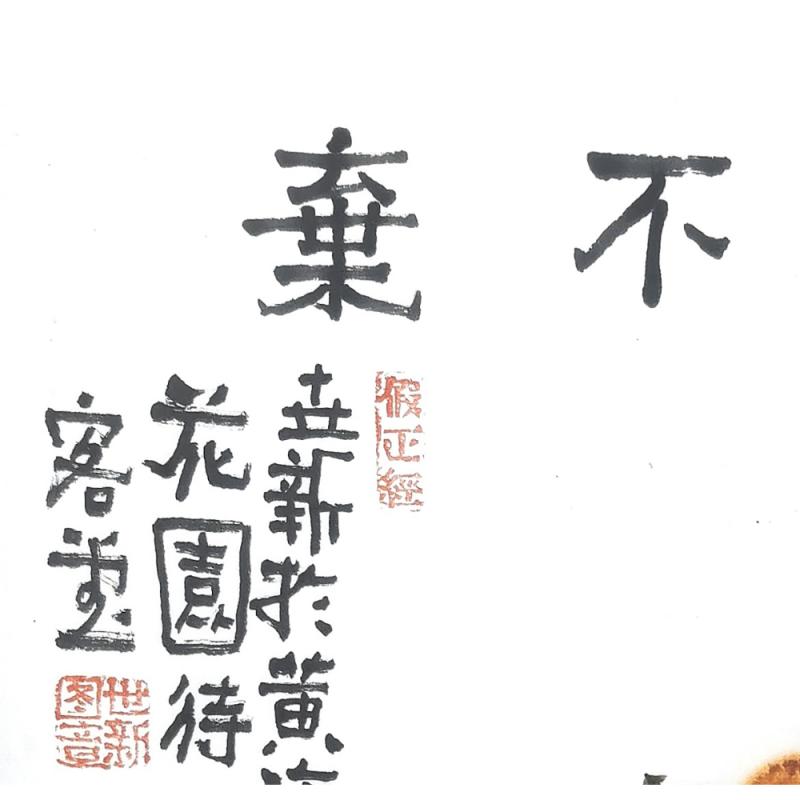 不
棄
假正經
世新於黃
花園待
客堂
世新
图章